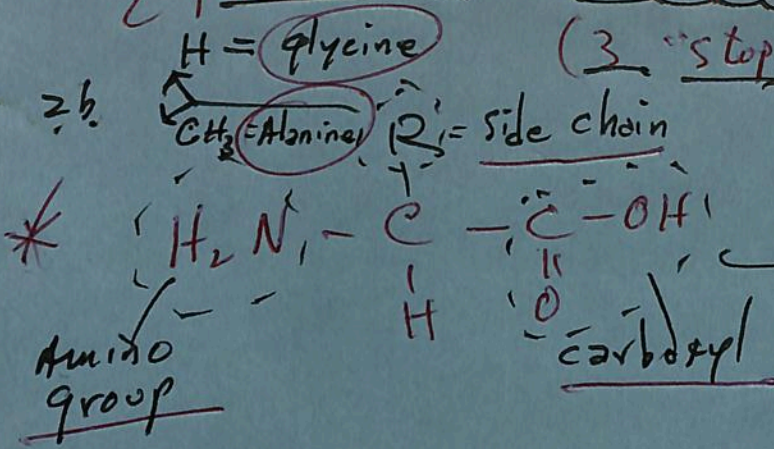 H = glycine
(3 "stop
2b.
CH3 = Alanine R = side chain
* H2N - C - C - OH
H O
Amino
group
carboxyl